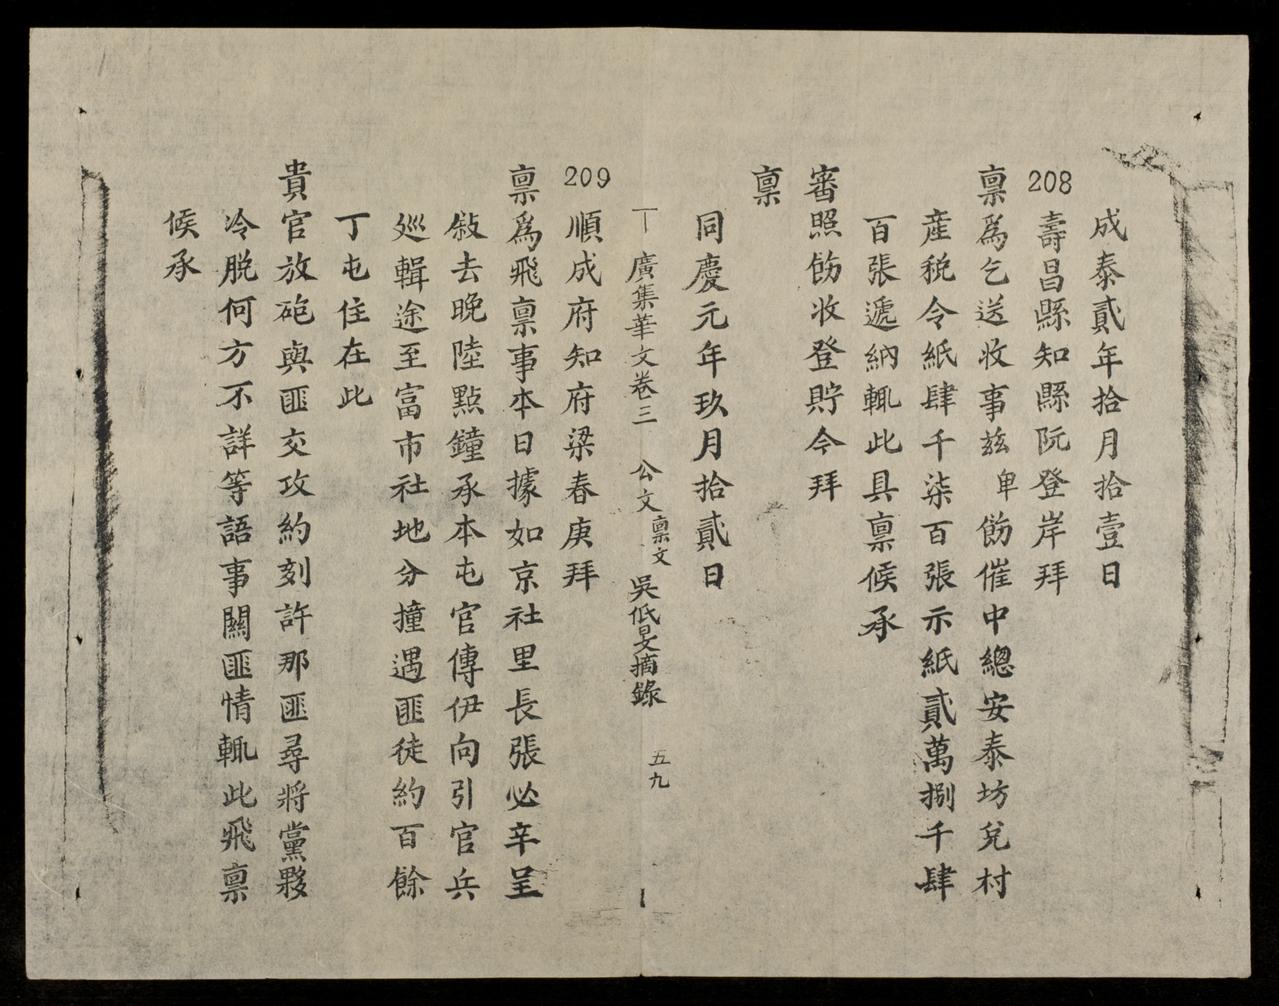 成泰貳年拾月拾壹日
208 壽昌縣知縣阮登岸拜
稟爲乞送收事茲卑飭催中總安泰坊兌村
產稅令紙肆千柒百張示紙貳萬捌千肆
百張遞納輒此具稟候承
審照飭收登貯今拜
稟
同慶元年玖月拾貳日
廣集華文卷三 公文 稟文 吳低旻摘錄 五九
209 順成府知府梁春庚拜
稟爲飛稟事本日據如京社里長張必辛呈
敍去晚陸點鐘承本屯官傳伊向引官兵
巡輯途至富市社地分撞遇匪徒約百餘
丁屯住在此
貴官放砲與匪交攻約刻許那匪尋將黨夥
冷脫何方不詳等語事關匪情輒此飛稟
候承